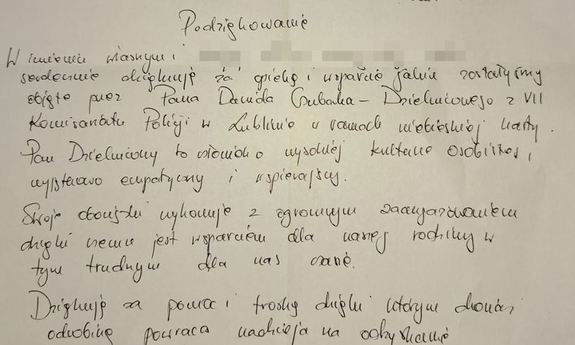 Podziękowanie
W imieniu własnym i
serdecznie dziękuję za opiekę i wsparcie jakim zostałyśmy
objęte przez Pana Dawida – Dzielnicowego z VII
Komisariatu Policji w Lublinie w ramach niebieskiej karty.
Pan Dzielnicowy to człowiek o wysokiej kulturze osobistej,
wyjątkowo empatyczny i wspierający.
Swoje obowiązki wykonuje z ogromnym zaangażowaniem
dzięki czemu jest wsparciem dla naszej rodziny w
tym trudnym dla nas czasie.
Dziękuję za pomoc i troskę dzięki którym choćby
odrobinę powraca nadzieja na odzyskanie